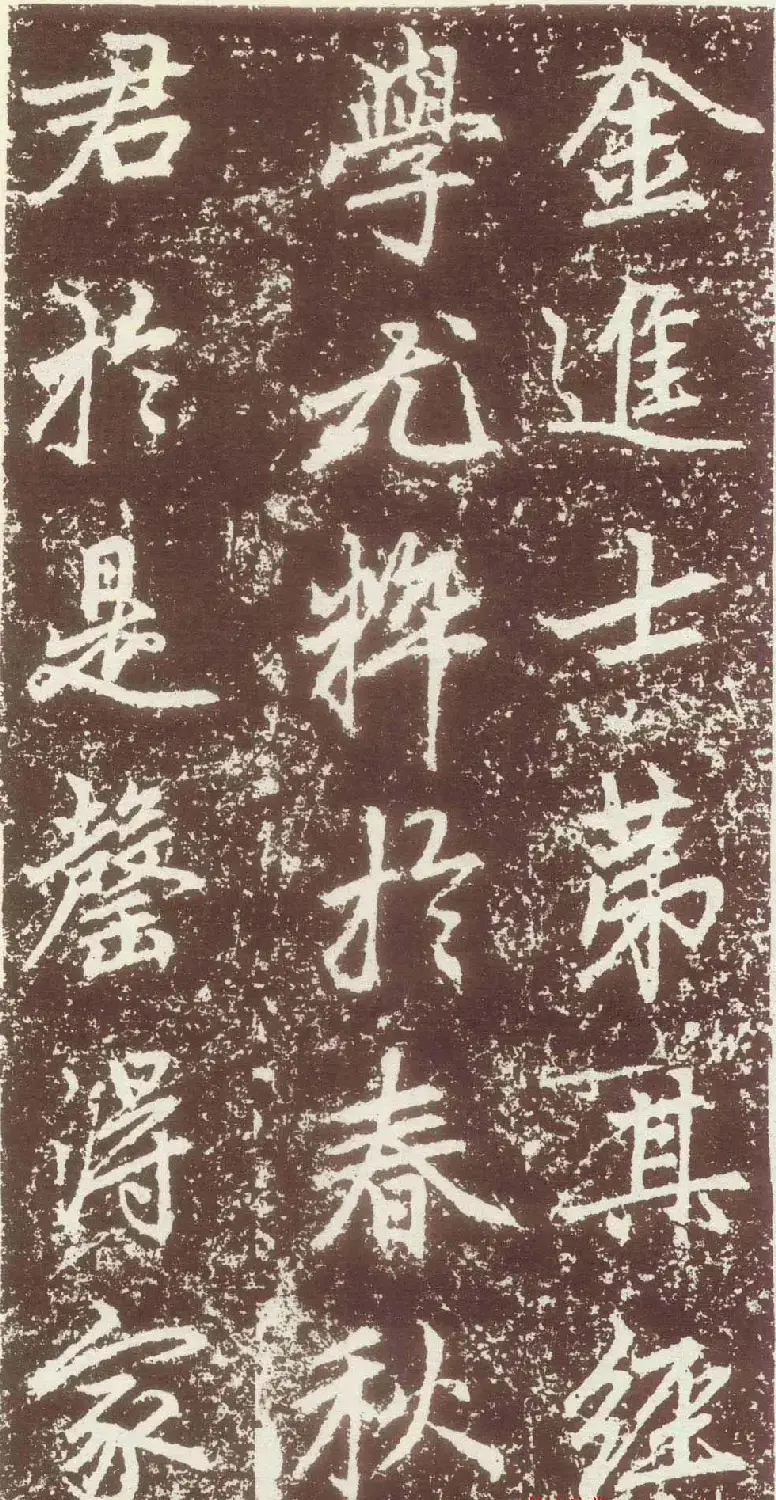 金進士第其經
學尤粹於春秋
君於是罄得家